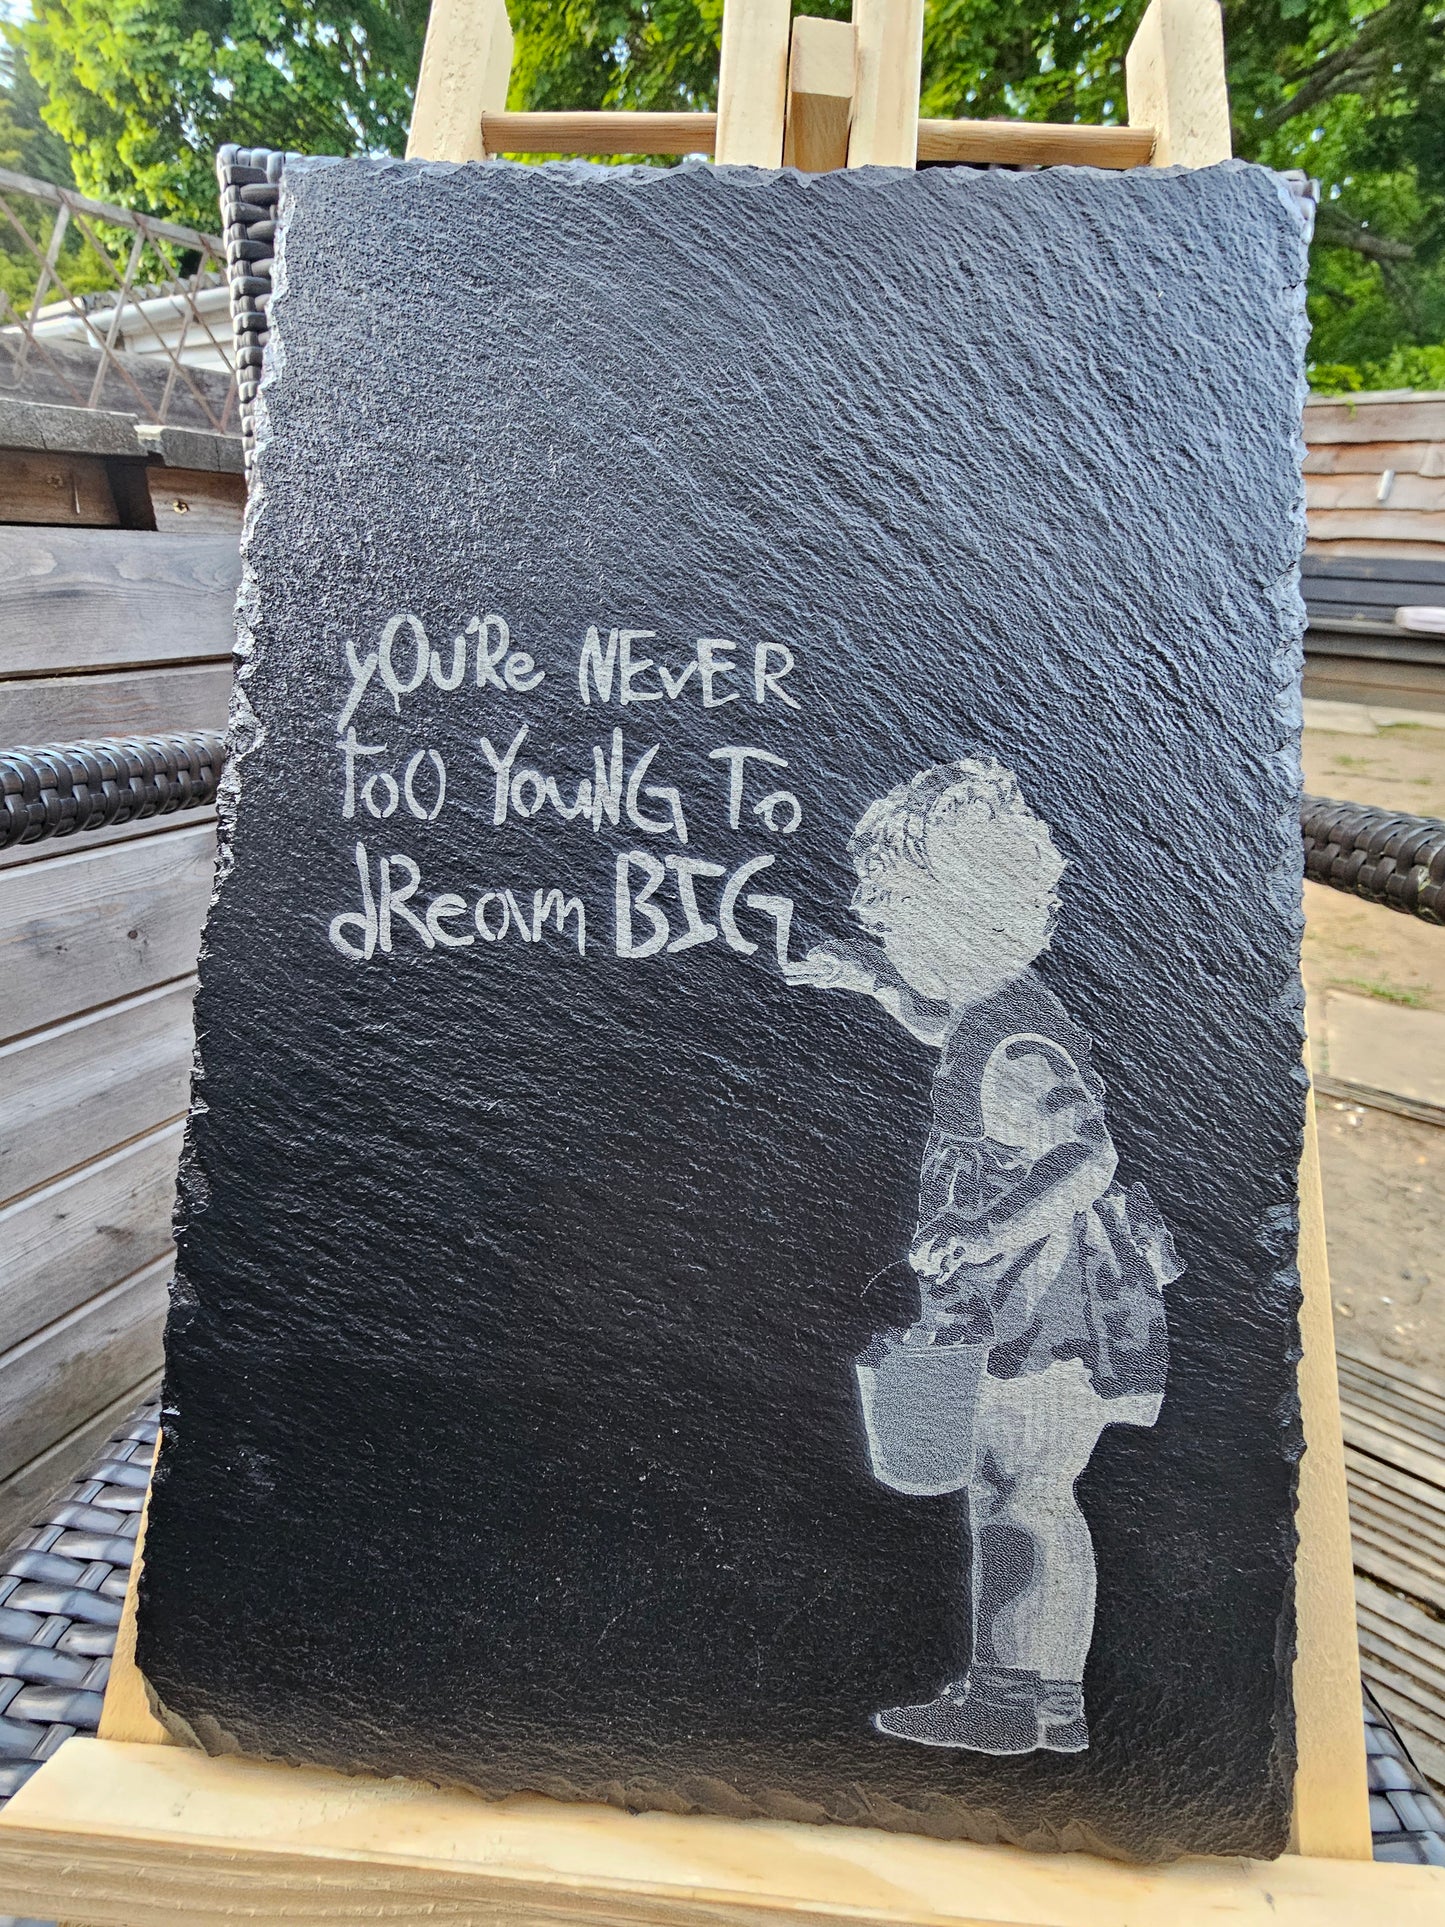 yOU'Re NEvER
too YouNG To
dReam BIG